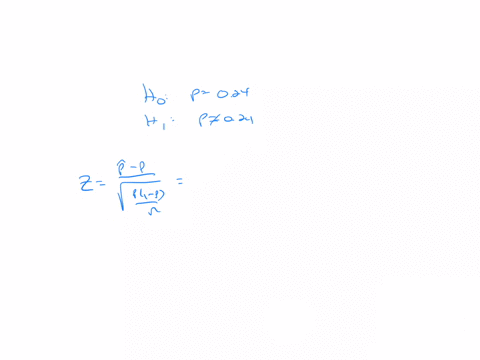 H₀: p = 0.24
H₁: p ≠ 0.24
Z = (p̂ - p) / √(p(1-p)/n) =